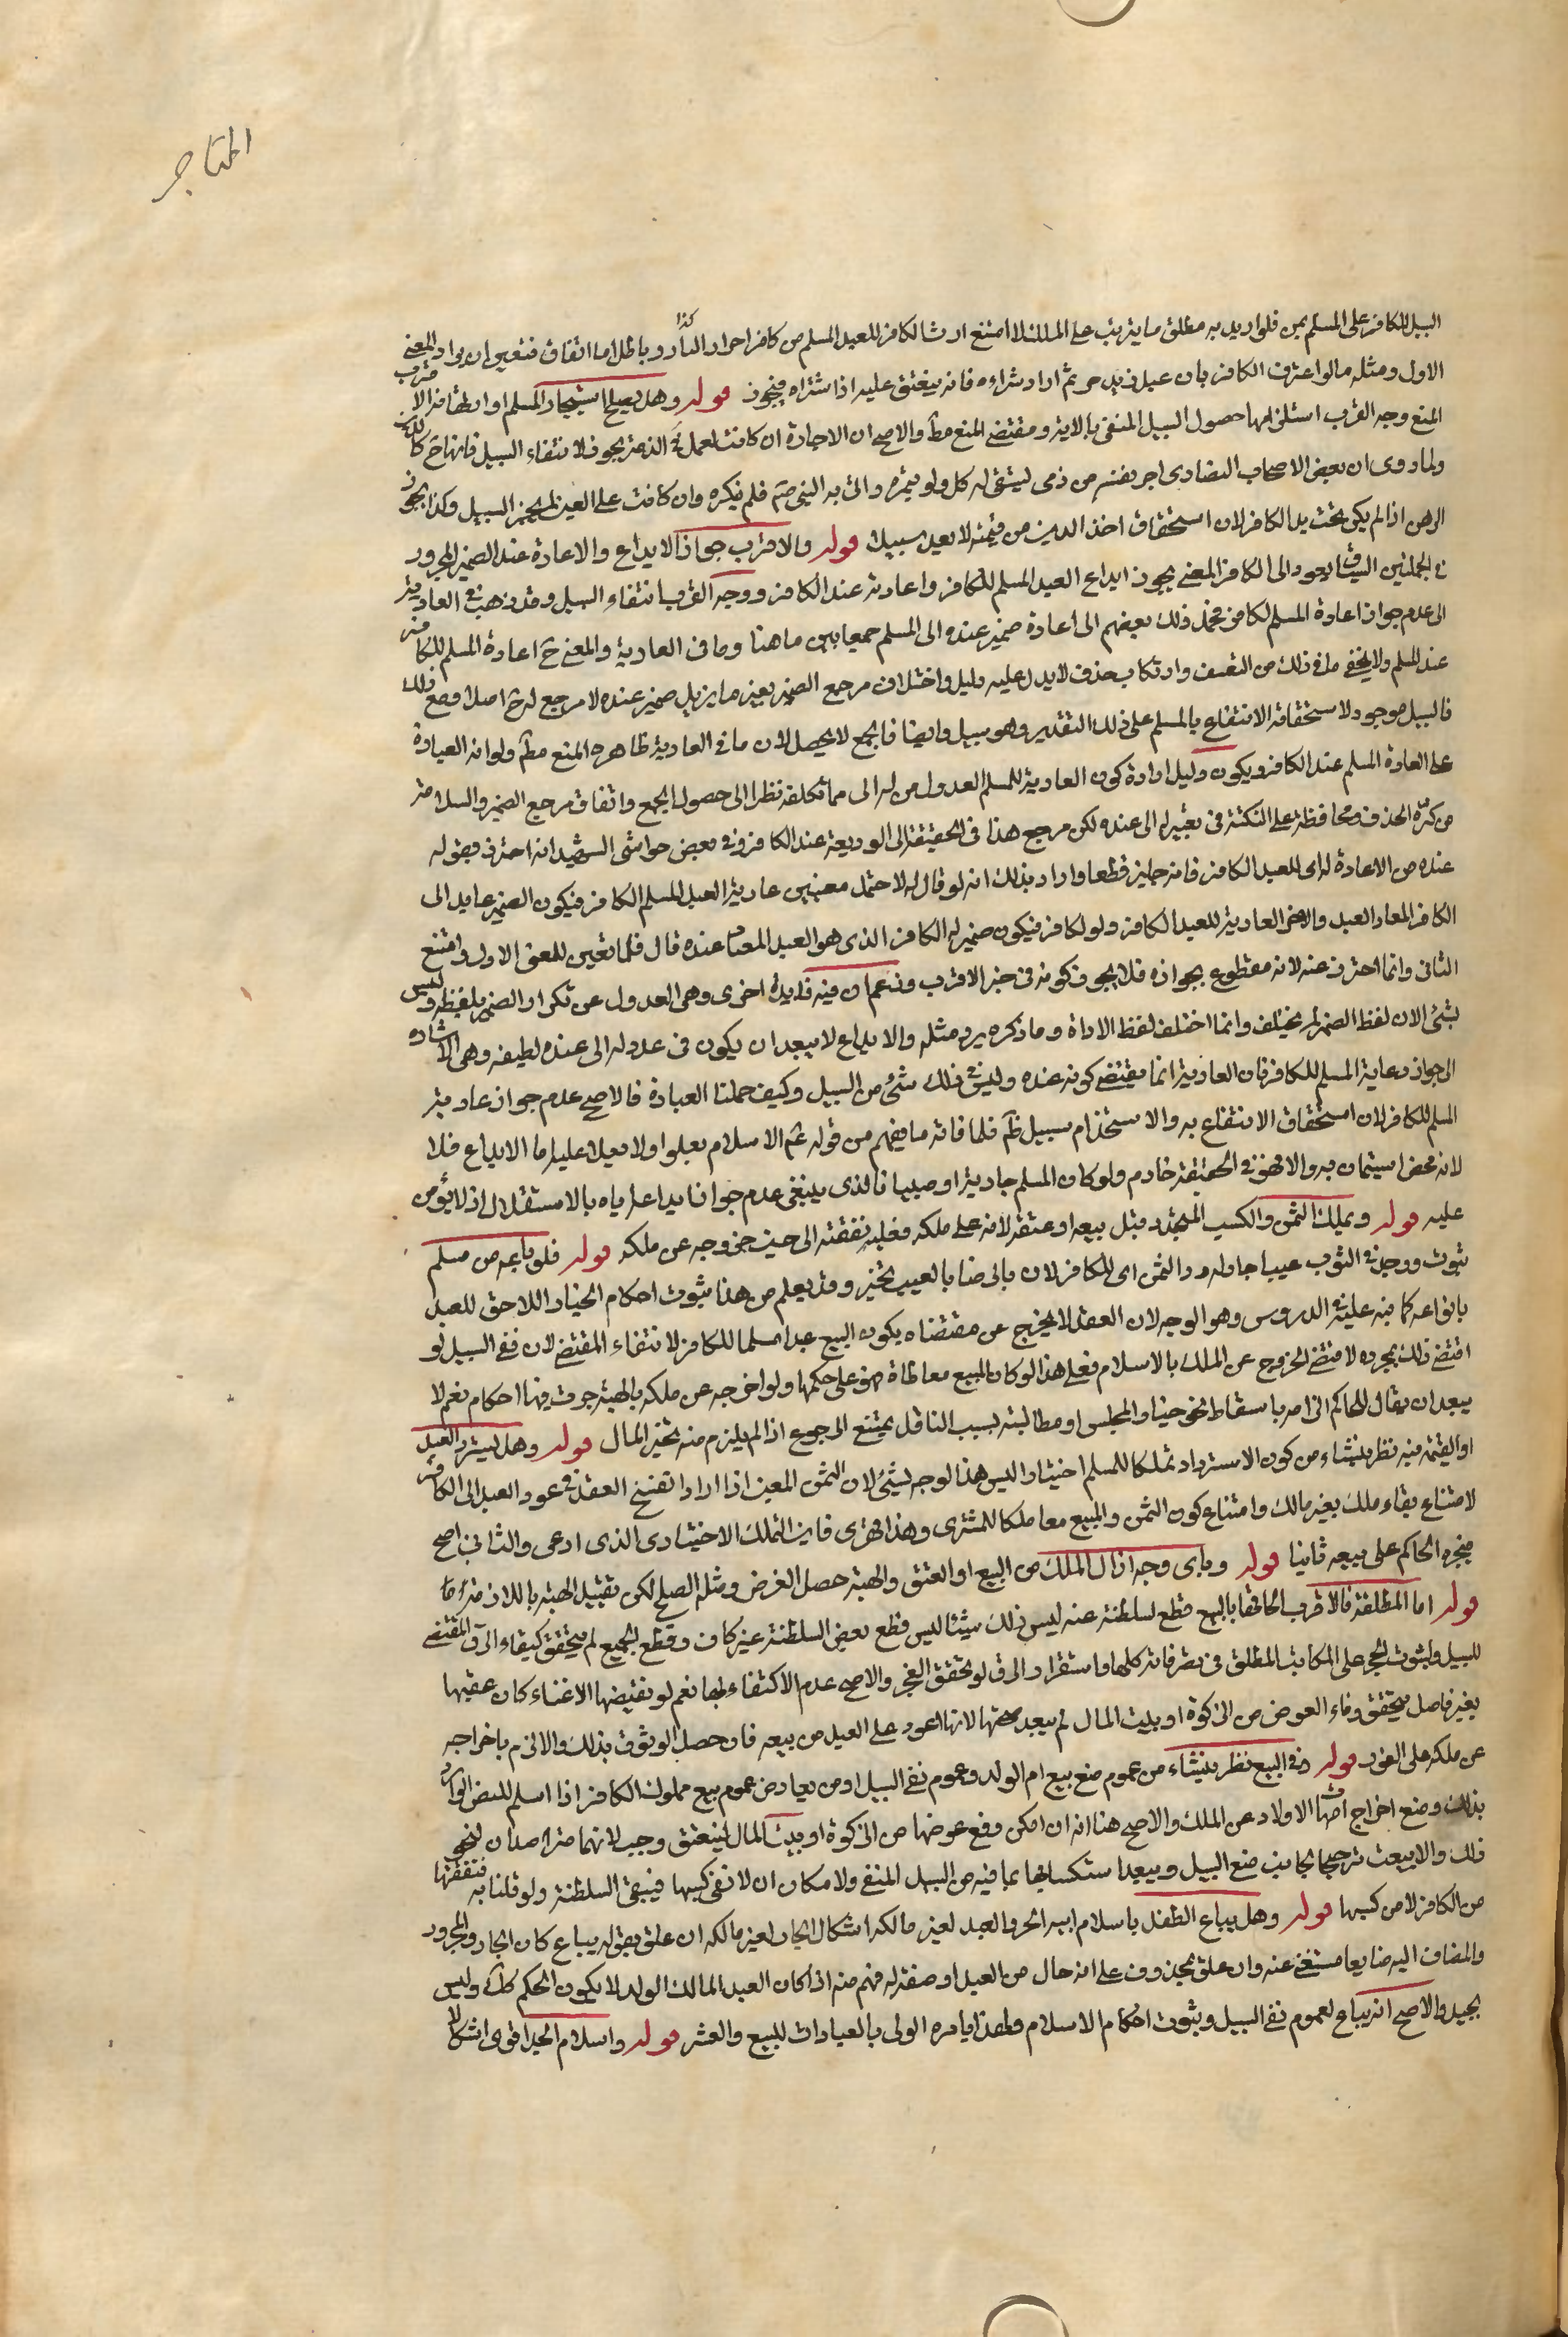 المتاجر
السبيل للكافر على المسلم بمن فلو اريد به مطلق ما يترتب على الملك لامتنع ارث الكافر للعبد المسلم من كافر اخر او الدار كذا وباطل اما اتفاق فتعين ان يراد المعنى
الاول ومثله ما لو اعترف الكافر بان عبدا في يد حر ثم اراد شراءه فانه ينعتق عليه اذا اشتراه فيجوز قوله وهل يصح استيجار المسلم او ارتهانه الاقرب
المنع وجه القرب استلزامها حصول السبيل المنفي بالاية ومقتضى المنع مطلقا والاصح ان الاجارة ان كانت لعمل في الذمة يجوز لانتفاء السبيل فانها ح كالدين
ولما روى ان بعض الاصحاب الانصاري اجر نفسه من ذمي ليستقي له كل دلو بتمرة واتى به النبي صم فلم ينكره وان كانت على العين لم يجز للسبيل وكذا يجوز
الرهن اذا لم يكن تحت يد الكافر لان استحقاق اخذ الدين من قيمته لا يعد سبيلا قوله والاقرب جواز الايداع والاعارة عنده الضمير المجرور
في الجملتين السياق يعود الى الكافر المعنى يجوز ايداع العبد المسلم للكافر واعارته عند الكافر ووجه القرب انتفاء السبيل وقد ذهب في العارية
الى عدم جواز اعارة المسلم لكافر فحمل ذلك بعضهم الى اعادة ضمير عنده الى المسلم جمعا بين ما هنا وما في العارية والمعنى ح اعارة المسلم للكافر
عند المسلم ولا يخفى ما في ذلك من التعسف وارتكاب حذف لا يدل عليه دليل واختلاف مرجع الضمير بغير ما يزيل ضمير عنده لا مرجع له ح اصلا ومع ذلك
فالسبيل موجود لاستحقاقه الانتفاع بالمسلم على ذلك التقدير وهو سبيل وايضا فالجمع لا يحصل لان ما في العارية ظاهره المنع مطلقا ولو انه العبارة
على اعارة المسلم عند الكافر ويكون دليل ارادة كون العارية للمسلم العدول من له الى مما تكلفه نظرا الى حصول الجمع واتفاق مرجع الضمير والسلامة
من كثرة الحذف ومحافظة على النكتة في تعبيره الى عنده لكن مرجع هذا في الحقيقة الى الوديعة عند الكافر وفي بعض حواشي الشهيد انه احترز بقوله
عنده من الاعارة له اي للعبد الكافر فانه جايز قطعا واراد بذلك انه لو قال له لاحتمل معنيين عارية العبد المسلم الكافر فيكون الضمير عايدا الى
الكافر المعار العبد والاخر العارية للعبد الكافر ولو لكافر فيكون ضمير له الكافر الذي هو العبد المعار عنده قال فلما تعين للمعنى الاول وامتنع
الثاني وانما احترز عنه لانه مقطوع بجوازه فلا يجوز كونه في حيز الاقرب وزعم ان فيه فايدة اخرى وهي العدول عن تكرار الضمير بلفظه وليس
بشئ لان لفظ الضمير لم يختلف وانما اختلف لفظ الاداة وما ذكره يرد مثله والايداع لا يبعد ان يكون في عدوله الى عنده لطيفة وهي الاشارة
الى جواز رعاية المسلم للكافر فان العارية انما يقتضي كونه عنده وليس في ذلك شئ من السبيل وكيف حملنا العبارة فالاصح عدم جواز عارية
المسلم للكافر لان استحقاق الانتفاع به والاستخدام سبيل ظم فلمنافاته ما يفهم من قوله عم الاسلام يعلوا ولا يعلا عليه اما الايداع فلا
لانه محض استيمان به والا فهو في الحقيقة خادم ولو كان المسلم جارية او صبيا فالذي ينبغي عدم جواز ايداعها اياه بالاستقلال اذ لا يؤمن
عليه قوله ويملك الثمن والكسب المتجدد قبل بيعه او عتقه لانه على ملكه فعليه نفقته الى حين خروجه عن ملكه قوله فلو باعه من مسلم
بثوب ووجد في الثوب عيبا جاز له رد الثمن اي للكافر لان بالرضا بالعيب تخير وقد يعلم من هذا ثبوت احكام الخيار اللاحق للعبد
بانواعه كما نبه عليه في الدروس وهو الوجه لان العقد لا يخرج عن مقتضاه بكون المبيع عبدا مسلما للكافر لانتفاء المقتضي لان نفي السبيل لو
اقتضى ذلك بمجرده لاقتضى الخروج عن الملك بالاسلام فعلى هذا لو كان المبيع معاطاة فهو على حكمها ولو اخرجه عن ملكه بالهبة جرت فيها احكامه نعم لا
يبعد ان يقال للحاكم الزامه باسقاط نحو خيار المجلس او مطالبته بسبب الناقل يمتنع الرجوع اذا لم يلزم منه تخير المال قوله وهل يسترد العبد
او القيمة فيه نظر ينشاء من كون الاسترداد تملكا للمسلم اختيارا ليس هذا لوجه بشئ لان الثمن المعين اذا اراد انفسخ العقد في عود العبد الى الكافر
لامتناع بقاء ملك بغير مالك وامتناع كون الثمن والمبيع معا ملكا للمشتري وهذا قهري فاين التملك الاختياري الذي ادعي والثاني اصح
فيجبره الحاكم على بيعه ثانيا قوله وباي وجه ازال الملك من البيع او العتق والهبة حصل الغرض ومثله الصلح لكن تقييد الهبة باللازمة
قوله اما المطلقة فالاقرب الحاقها بالبيع قطع لسلطنة عنه ليس ذلك شيئا ليس قطع بعض السلطنة غير كاف وقطع الجميع لم يتحقق كبقاء الرق المقتضي
للسبيل ولثبوت الحجر على المكاتب المطلق في تصرفاته كلها واستقرار الرق لو تحقق العجز والاصح عدم الاكتفاء بها نعم لو تقتضيها الاغناء كان عقيبها
بغير فاصل يتحقق وفاء العوض من الزكوة او بيت المال لم يبعد صحتها لانها اعود على العبد من بيعه فان حصل الوثوق بذلك والا الزم باخراجه
عن ملكه على الفور قوله وفي البيع نظر ينشاء من عموم منع بيع ام الولد وعموم نفي السبيل او من تعارض عموم بيع مملوك الكافر اذا اسلم للنص الوارد
بذلك ومنع اخراج امهات الاولاد عن الملك والاصح هنا انه ان امكن دفع عوضها من الزكوة او بيت المال لينعتق وجب لانهما مترصدان لنحو
ذلك والا بيعت ترجيحا لجانب منع السبيل ويبعد استكسابها بما فيه من السبيل المنفي ولا مكان ان لا تفي كسبها فيبقى السلطنة ولو قلنا به فنفقتها
من الكافر لا من كسبها قوله وهل يباع الطفل باسلام ابيه الحر والعبد لغير مالكه اشكال الجار لغير مالكه ان علق بقوله يباع كان الجار والمجرور
والمضاف اليه ضايعا مستغنى عنه وان علق بمحذوف على انه حال من العبد او صفة له فهم منه اذا كان العبد المالك الولد لا يكون الحكم كذلك وليس
بجيد والاصح انه يباع لعموم نفي السبيل وبثبوت احكام الاسلام ولهذا يامره الولي بالعبادات للسبع والعشر قوله واسلام الجد اقوى اشكالا